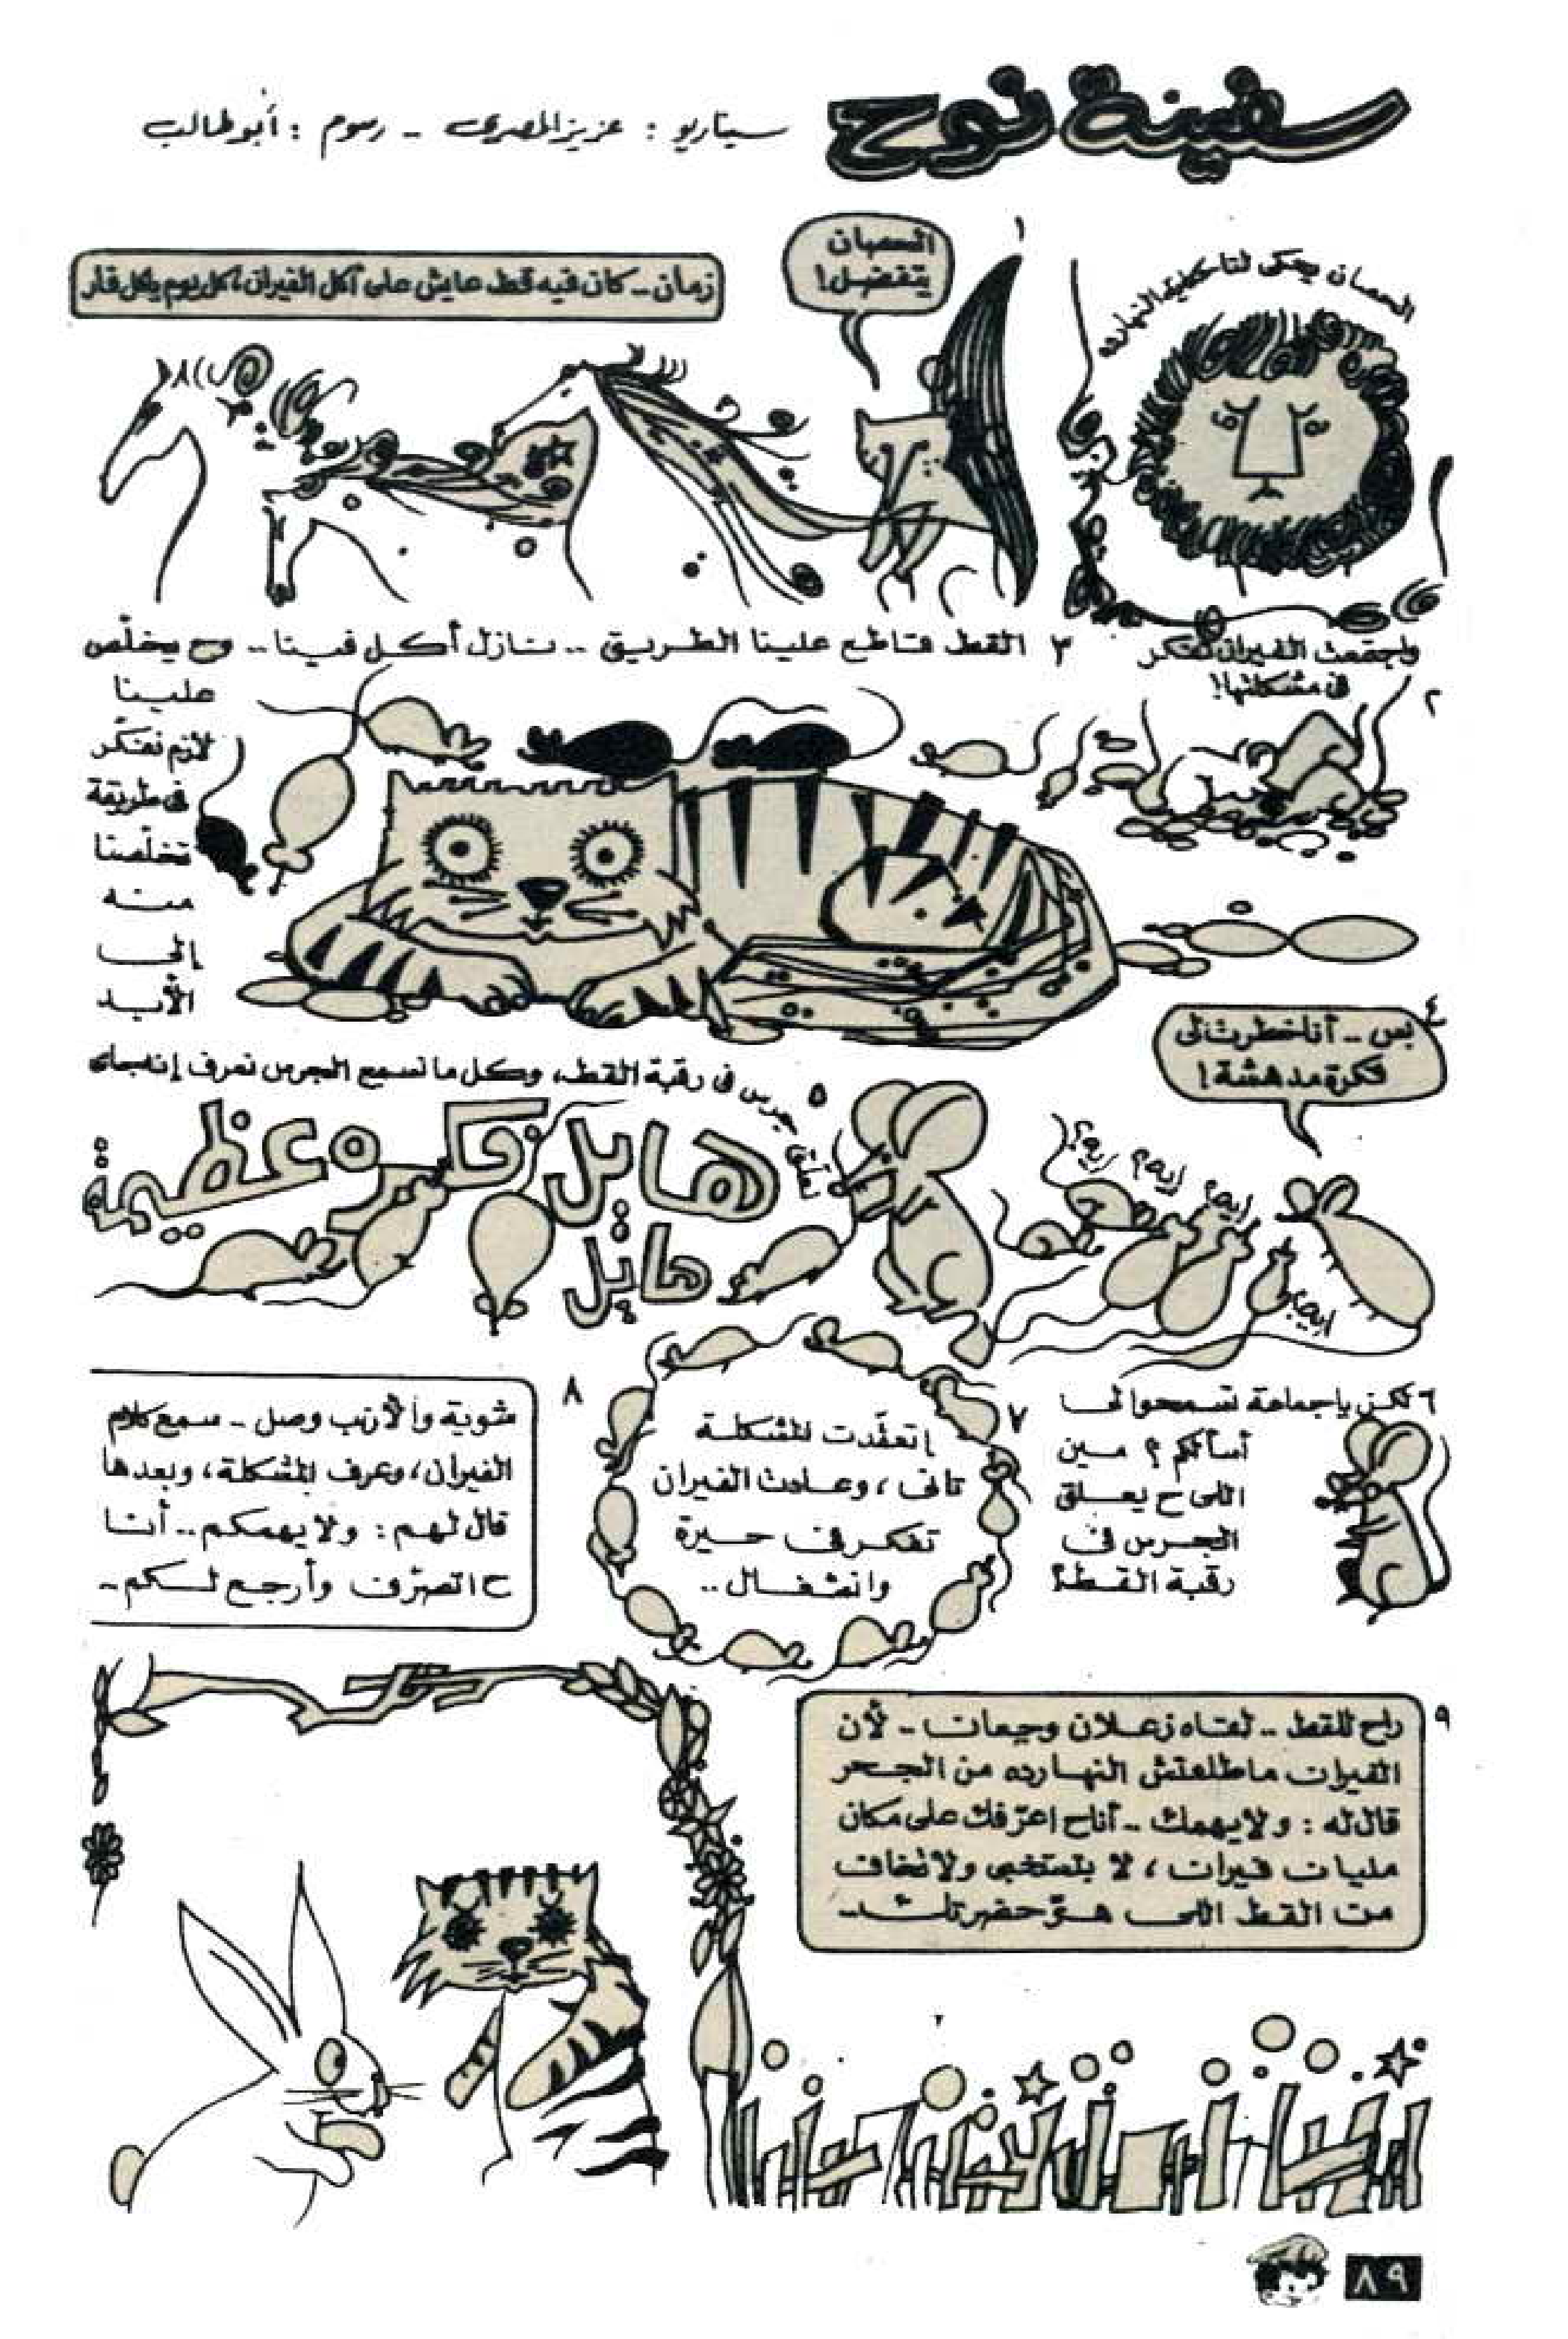 سفينة نوح
سيناريو : عزيز المصرى - رسوم : أبو طالب
١
الحصان يحكى لنا حكاية النهارده
الحصان
يتفضل!
زمان - كان فيه قط عايش على أكل الفيران، كل يوم ياكل فار
٢
واجتمعت الفيران تفكر
فى مشكلتها!
٣
القط قاطع علينا الطريق .. نازل أكل فينا .. وح يخلّص
علينا
لازم نفكّر
فى طريقة
تخلّصنا
منه
إلى
الأبد
٤
بس .. أنا خطرت لى
فكرة مدهشة!
إيه؟
إيه؟
إيه؟
إيه؟
٥
نعلّق جرس فى رقبة القط، وكل ما نسمع الجرس نعرف إنه جاء
هايل فكره عظيمة
هائل
٦
لكن يا جماعة تسمحوا لى
أسألكم ؟ مين
اللى ح يعلق
الجرس فى
رقبة القط؟
٧
إتعقّدت المشكلة
تانى ، وعادت الفيران
تفكر فى حيرة
وانشغال ..
٨
شوية والأرنب وصل - سمع كلام
الفيران، وعرف المشكلة، وبعدها
قال لهم : ولا يهمكم .. أنا
ح اتصرّف وأرجع لكم -
٩
راح للقط .. لقاه زعلان وجيعان - لأن
الفيران ما طلعتش النهارده من الجحر
قال له : ولا يهمك - أنا ح اعرّفك على مكان
مليان فيران ، لا بتستخبى ولا تخاف
من القط اللى هوّ حضرتك -
٨٩